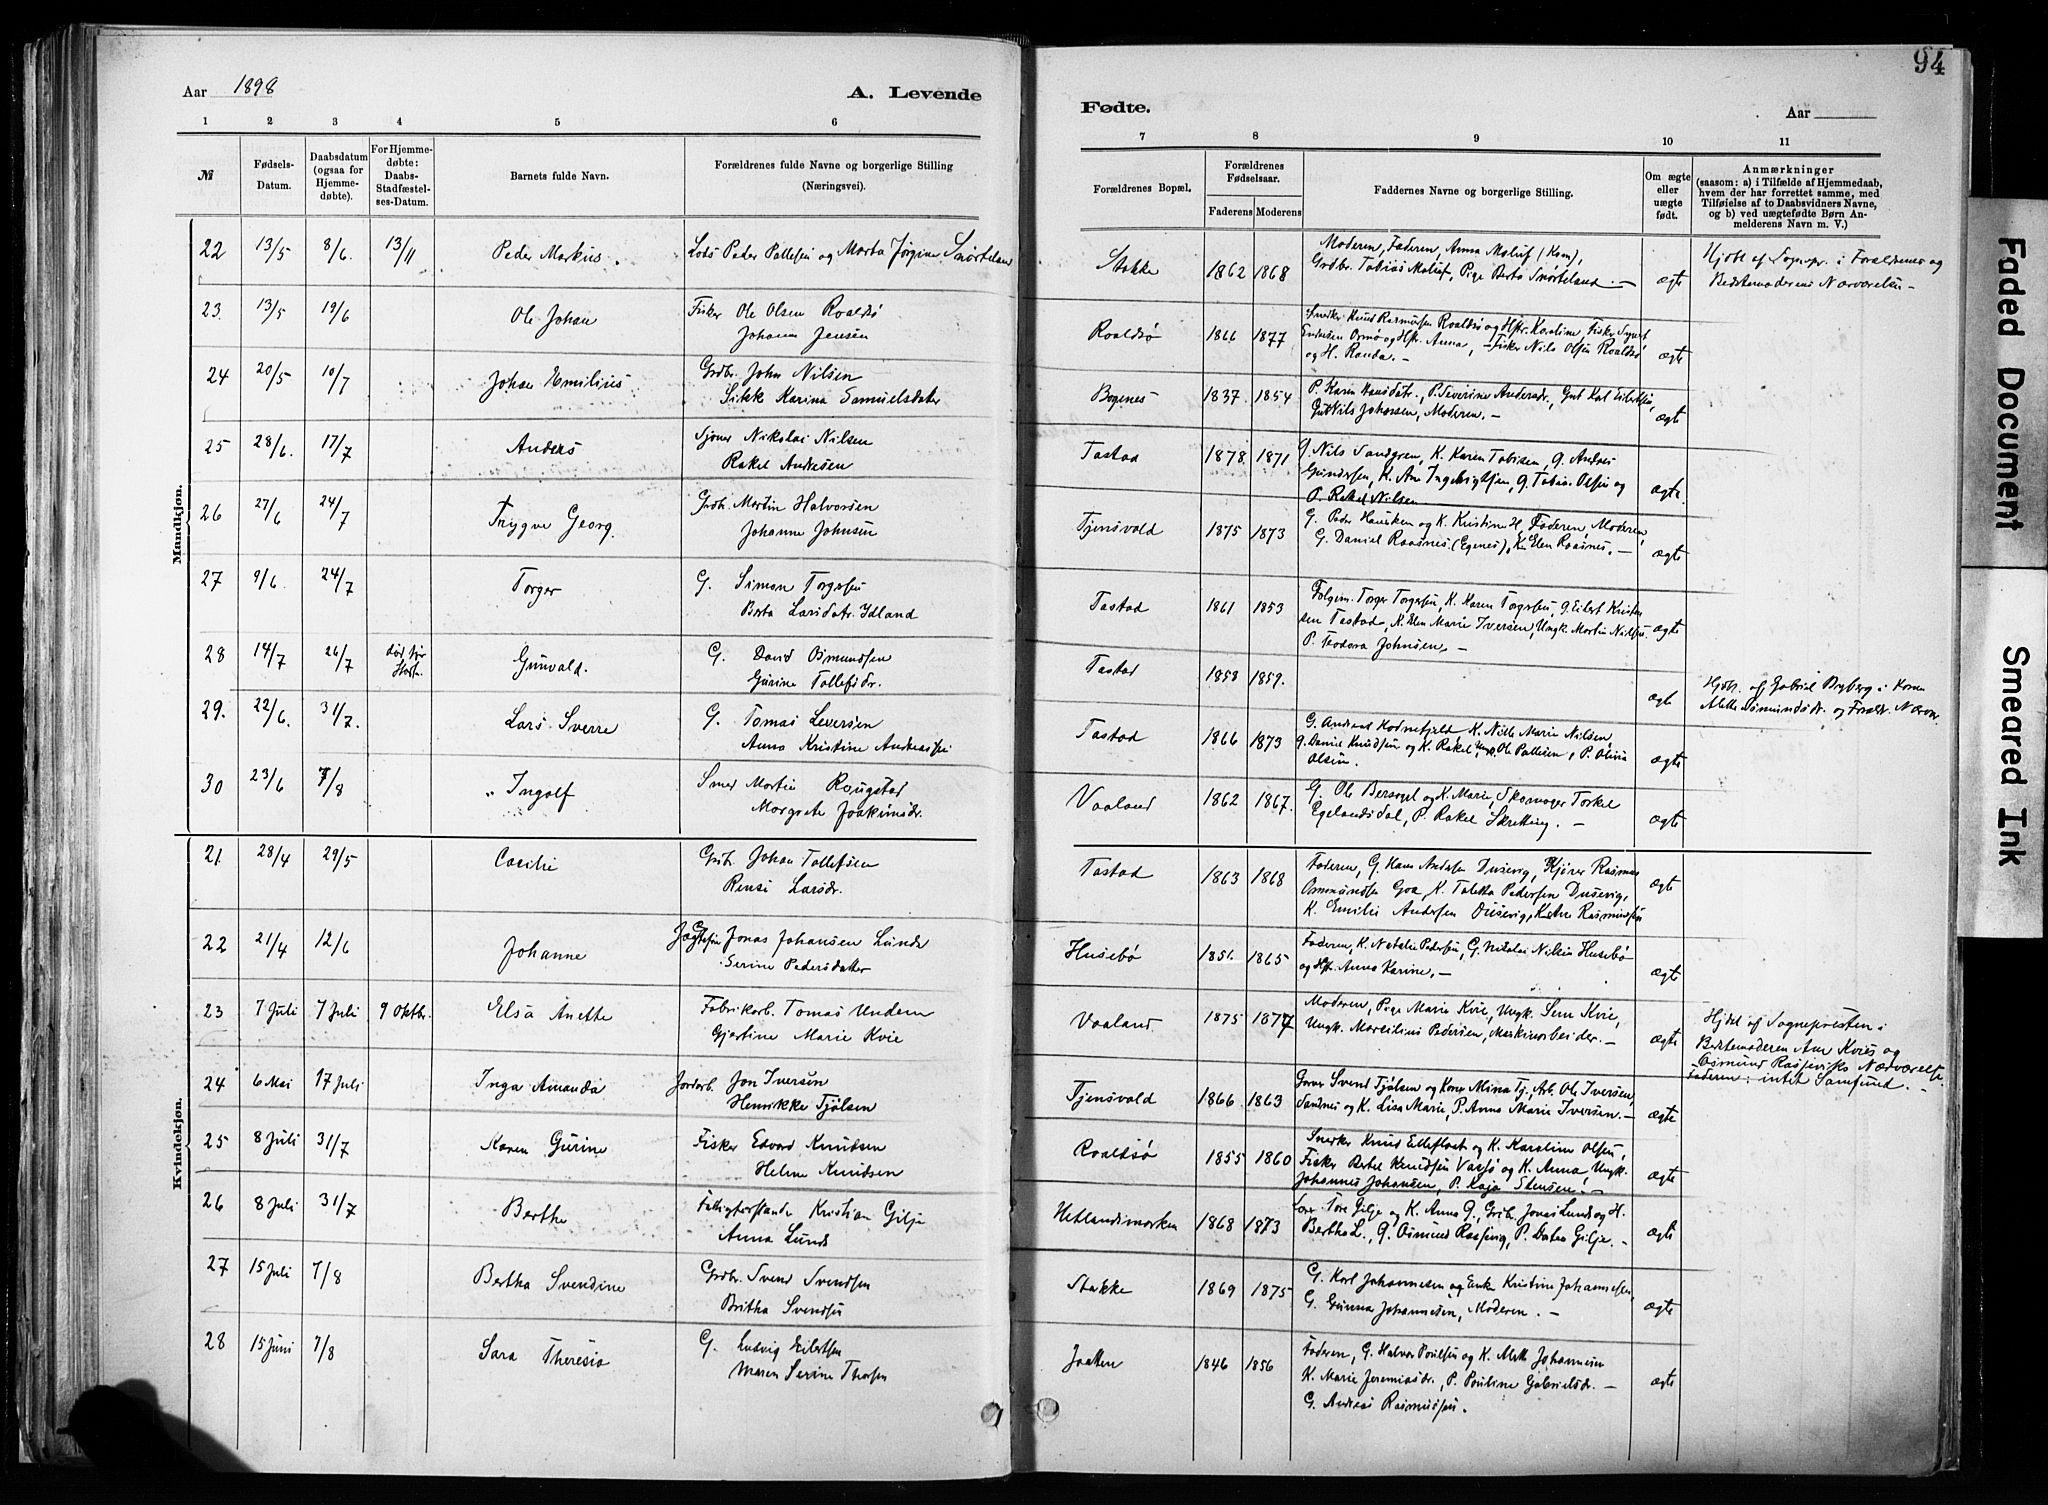 94
Aar 1898
A. Levende
Fødte.
Aar
1 2 3 4 5 6 7 8 9 10 11
№
Fødsels-
Datum.
Daabsdatum
(ogsaa for
Hjemme-
døbte).
For Hjemme-
døbte:
Daabs-
Stadfæstel-
ses-Datum.
Barnets fulde Navn.
Forældrenes fulde Navne og borgerlige Stilling
(Næringsvei).
Forældrenes Bopæl.
Forældrenes
Fødselsaar.
Faderens Moderens
Faddernes Navne og borgerlige Stilling.
Om ægte
eller
uægte
født.
Anmærkninger
(saasom: a) i Tilfælde af Hjemmedaab,
hvem der har forrettet samme, med
Tilføielse af to Daabsvidners Navne,
og b) ved uægtefødte Børn An-
melderens Navn m. V.)
Mandkjøn.
22 13/5 8/6. 13/11 Peder Markus. Lods Peder Pallesen og Marta Jørgine
Stokke 1862 1868 ægte
Moderen, Faderen, Anna Maluf (Kon),
Grdbr. Tobias Maluf, Pige Berta Snørteland. —
Hjdbt af Sognepr. i Forældrenes og
Bedstemoderens Nærværelse —
23. 13/5 19/6 Ole Johan
Fisker Ole Olsen Roaldsø
Johanna Jensen
Roaldsø 1866 1877 ægte
Snedker Knud Rasmussen Roaldsø og Hstr. Karoline, Fisker
Omø og Hstr. Anna, — Fisker Nils Olsen Roaldsø
og H. Randa. —
24 20/5 10/7 Johan Emilius
Grdbr. John Nilsen
Karina Samuelsdater
Bogenes 1837. 1854 ægte
P. Karen Hansdatr., P. Severine Andersdr, Gut Karl Eilertsen,
Gut Nils Johnsen, Moderen. —
25 28/6. 17/7 Anders
Sjøm. Nikolai Nilsen
Rakel Andersen
Tastad 1878. 1871 ægte.
G. Nils Sandgren, K. Karen Tobisen, G. Andreas
Gundersen, K. Ane Ingebrigtsen, G. Tobias Olsen og
P. Rakel Nilsen
26 27/6 24/7 Trygve Georg.
Grdb. Martin Halvorsen
Johanne Johnsen
Tjensvold 1875 1873 ægte
G. Peder Hauken og K. Kristine H, Faderen, Moderen,
G. Daniel Raasnes (Egenes), K. Elen Raasnes. —
27 9/6. 24/7 Torger
G. Simon Torgersen
Berta Larsdatr. Ydland
Tastad 1861 1853 ægte
Folgem. Torger Torgersen, K. Karen Torgersen, G. Eilert Kristen
sen Tastad, K. Elen Marie Iversen, Ungk. Martin Nilsen.
P. Teodora Johnsen, —
28 14/7 26/7 død før Gunvald.
G. David Osmundsen
Gurine Tollefsdr.
Tastad 1858 1859. ægte
Hjdb. af Gabriel Byberg i Kona
Alette Osmundsdr. og Forældr. Nærvær.
29. 22/6. 31/7. Lars Sverre
G. Tomas Leversen
Anna Kristine Andreassen
Tastad 1866 1873 ægte
G. Andreas Kodnefjeld K. Nille Marie Nilsen,
G. Daniel Knudsen og K. Rakel, Ungk. Ole Pallesen, P. Olivia
Olsen.
30 23/6 7/8 Ingolf
Smed Martin Rougstad
Margrete Joakimsdr.
Vaaland 1862 1867. ægte
G. Ole Bersagel og K. Marie, Skomager Torkel
Egelandsdal, P. Rakel Skretting. —
Kvindekjøn.
21. 28/4 29/5 Cecilie
Grdb. Johan Tollefsen
Rensi Larsdr.
Tastad 1863 1868 ægte
Faderen, G. Hans Andersen Dusevig, Kjører Rasmus
Ommundsen Goa, K. Taletta Pedersen Dusevig,
K. Emilie Andersen Dusevig, K. Ane Rasmussen
22 21/4 12/6 Johanne
Jonas Johansen Lunde
Serine Pedersdatter
Husebø 1851. 1865 ægte
Faderen, K. Natalie Pedersen, G. Nikolai Nilsen Husebø
og Hstr. Anna Karine, —
23 7 Juli 7 Juli 9 Oktbr. Elsa Anette
Fabrikarb. Tomas Undem
Gjertine Marie Kvie
Vaaland 1875 1877 ægte
Moderen, Pige Marie Kvie, Ungk. Sem Kvie,
Ungk. Martilius Pedersen, Maskinarbeider. —
Hjdbt af Sognepresten i
Bedstemoderen Ane Kvies og
Osmund Rasseviks Nærværelse.
Faderen: intet Samfund. —
24 6 Mai 17 Juli Inga Amanda
Jordarb. Jon Iversen
Henrikke Tjølsen
Tjensvold 1866. 1863 ægte
Svend Tjølsen og Kone Mina Tj, Arb. Ole Iversen,
Sandnes og K. Lisa Marie, P. Anna Marie Iversen. —
25 8 Juli 31/7 Karen Gurine
Fisker Edvard Knudsen
Helene Knudsen
Roaldsø 1855 1860 ægte
Snedker Knud Ellefsæt og K. Karoline Olsen,
Fisker Bertel Knudsen Vassø og K. Anna, Ungk.
Johannes Johansen, P. Kaja Stensen. —
26 8 Juli 31/7 Berthe
Fattigforstander Kristian Gilje
Anna Lunde
Hetlandsmarken 1868 1873 ægte
Tore Gilje og K. Anna G., Grdb. Jonas Lunde og H.
Bertha L., G. Osmund Rassevig, P. Dorthea Gilje. —
27 15 Juli 7/8 Bertha Svendine
Grdbr. Svend Svendsen
Britha Svendsen
Stokke 1869 1875 ægte
G. Karl Johannesen og Enke Kristine Johannesen,
G. Gunna Johannesen, Moderen. —
28 15 Juni 7/8 Sara Theresia
G. Ludvig Eilertsen
Maren Serine Thorsen
Jaatten 1846 1856 ægte
Faderen, G. Halvor Poulsen og K. Alette Johannesen
K. Marie Jeremiasdr., P. Pauline Gabrielsdr. —
G. Andreas Rasmussen.
Faded Document
Smeared Ink